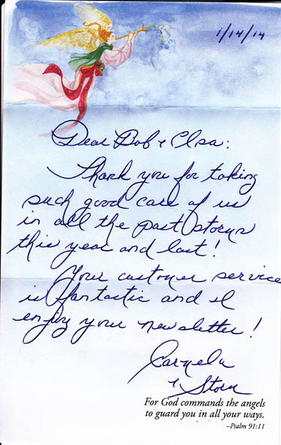 1/14/14
Dear Bob & Elsa:
Thank you for taking
such good care of us
in all the past storms
this year and last!
Your customer service
is fantastic and I
enjoy your newsletter!
Carmela
& Storm
For God commands the angels
to guard you in all your ways.
–Psalm 91:11